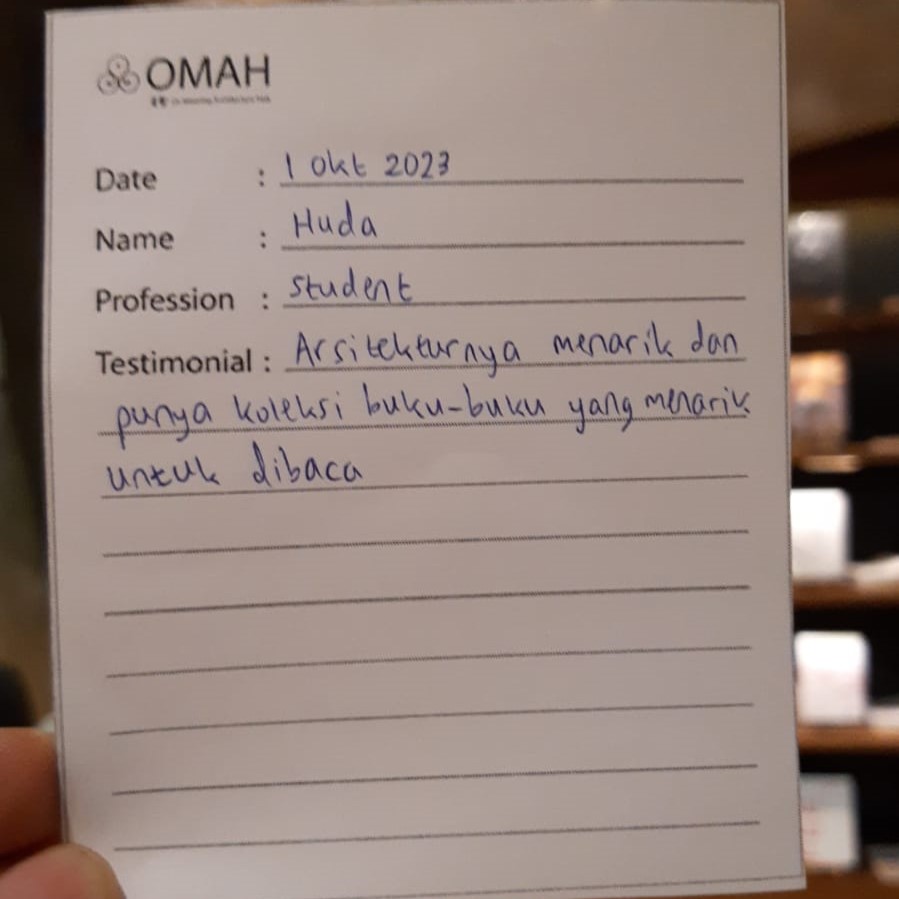 OMAH
Date : 1 Okt 2023
Name : Huda
Profession : student
Testimonial : Arsitekturnya menarik dan
punya koleksi buku-buku yang menarik
untuk dibaca